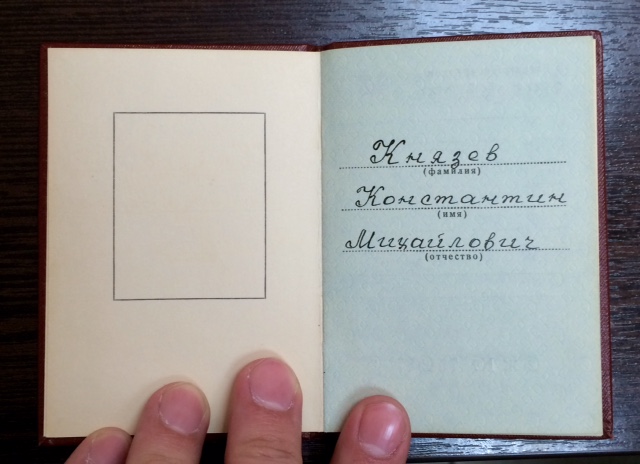 Князев
(фамилия)
Константин
(имя)
Михайлович
(отчество)